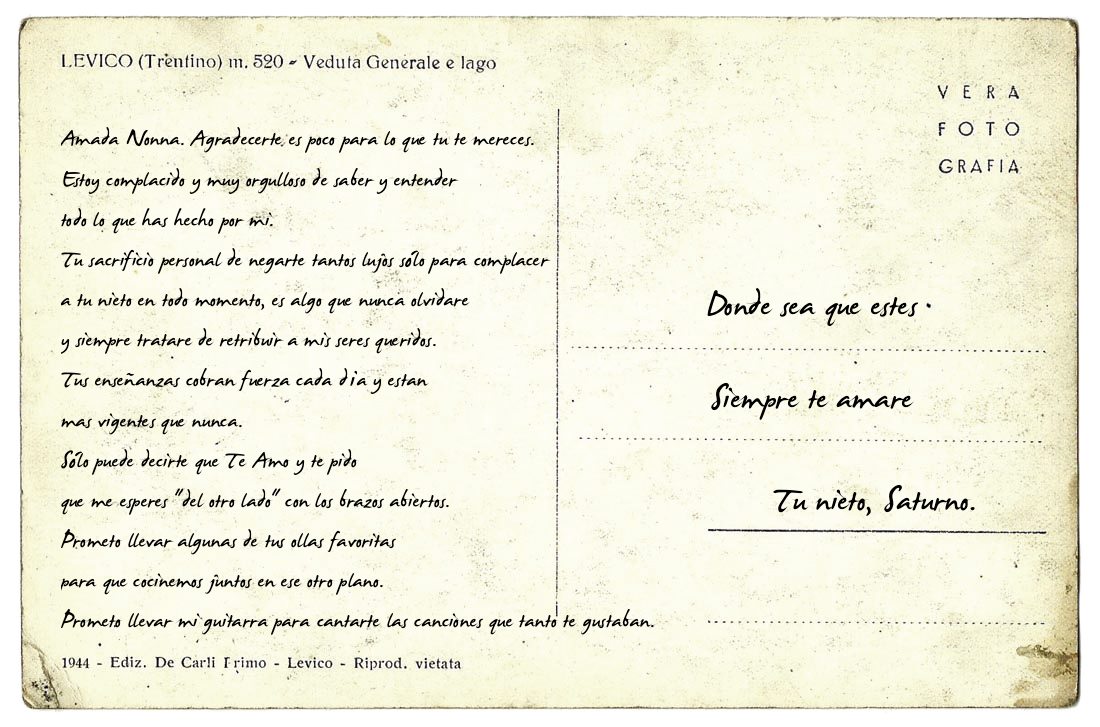 LEVICO (Trentino) m. 520 - Veduta Generale e lago
VERA
FOTO
GRAFIA
Amada Nonna. Agradecerte es poco para lo que tu te mereces.
Estoy complacido y muy orgulloso de saber y entender
todo lo que has hecho por mi.
Tu sacrificio personal de negarte tantos lujos sólo para complacer
a tu nieto en todo momento, es algo que nunca olvidare
y siempre tratare de retribuir a mis seres queridos.
Tus enseñanzas cobran fuerza cada dia y estan
mas vigentes que nunca.
Sólo puede decirte que Te Amo y te pido
que me esperes "del otro lado" con los brazos abiertos.
Prometo llevar algunas de tus ollas favoritas
para que cocinemos juntos en ese otro plano.
Prometo llevar mi guitarra para cantarte las canciones que tanto te gustaban.
Donde sea que estes
Siempre te amare
Tu nieto, Saturno.
1944 - Ediz. De Carli Primo - Levico - Riprod. vietata